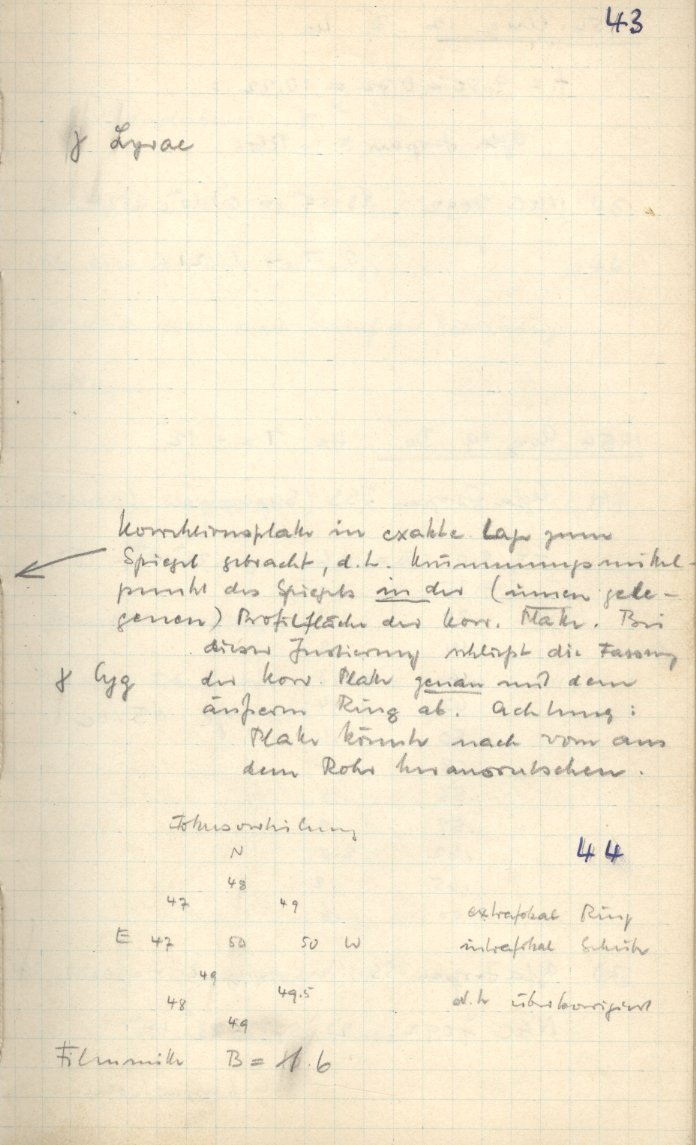 43
γ Lyrae
Korrektionsplatte in exakte Lage zum
Spiegel gebracht, d.h. Krümmungsmittel-
punkt des Spiegels in der (innen gele-
genen) Profilfläche der Korr. Platte. Bei
dieser Justierung schließt die Fassung
γ Cyg der Korr. Platte genau mit dem
äußeren Ring ab. Achtung:
Platte könnte nach vorn aus
dem Rohr herausrutschen.
Fokusverteilung
N 44
48
47 49 extrafokal Ring
E 47 50 50 W intrafokal Scheibe
49
48 49.5 d.h. überkorrigiert
49
Filmmitte B = 1.6